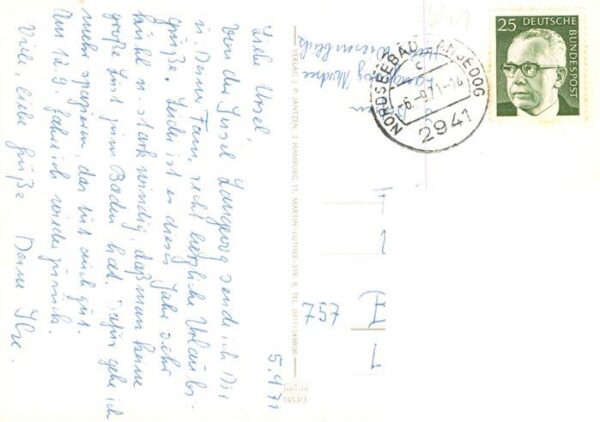 5.9.71
Liebe Ursel,
von der Insel Langeoog sende ich Dir
u. Deiner Fam. recht herzliche Urlaubs-
grüße. Leider ist es dieses Jahr sehr
kühl u. stark windig, daß man keine
große Lust zum Baden hat. Dafür gehe ich
mehr spazieren, das tut auch gut.
Am 12.9. fahre ich wieder zurück.
Viele, liebe Grüße Deine Ilse.
VERLAG JANTZEN, 2 HAMBURG 11, MARTIN-LUTHER-STR. 8, TEL. 0411/
1453/3
25 DEUTSCHE
BUNDESPOST
NORDSEEBAD LANGEOOG
c
-6.-9.71-14
2941
757